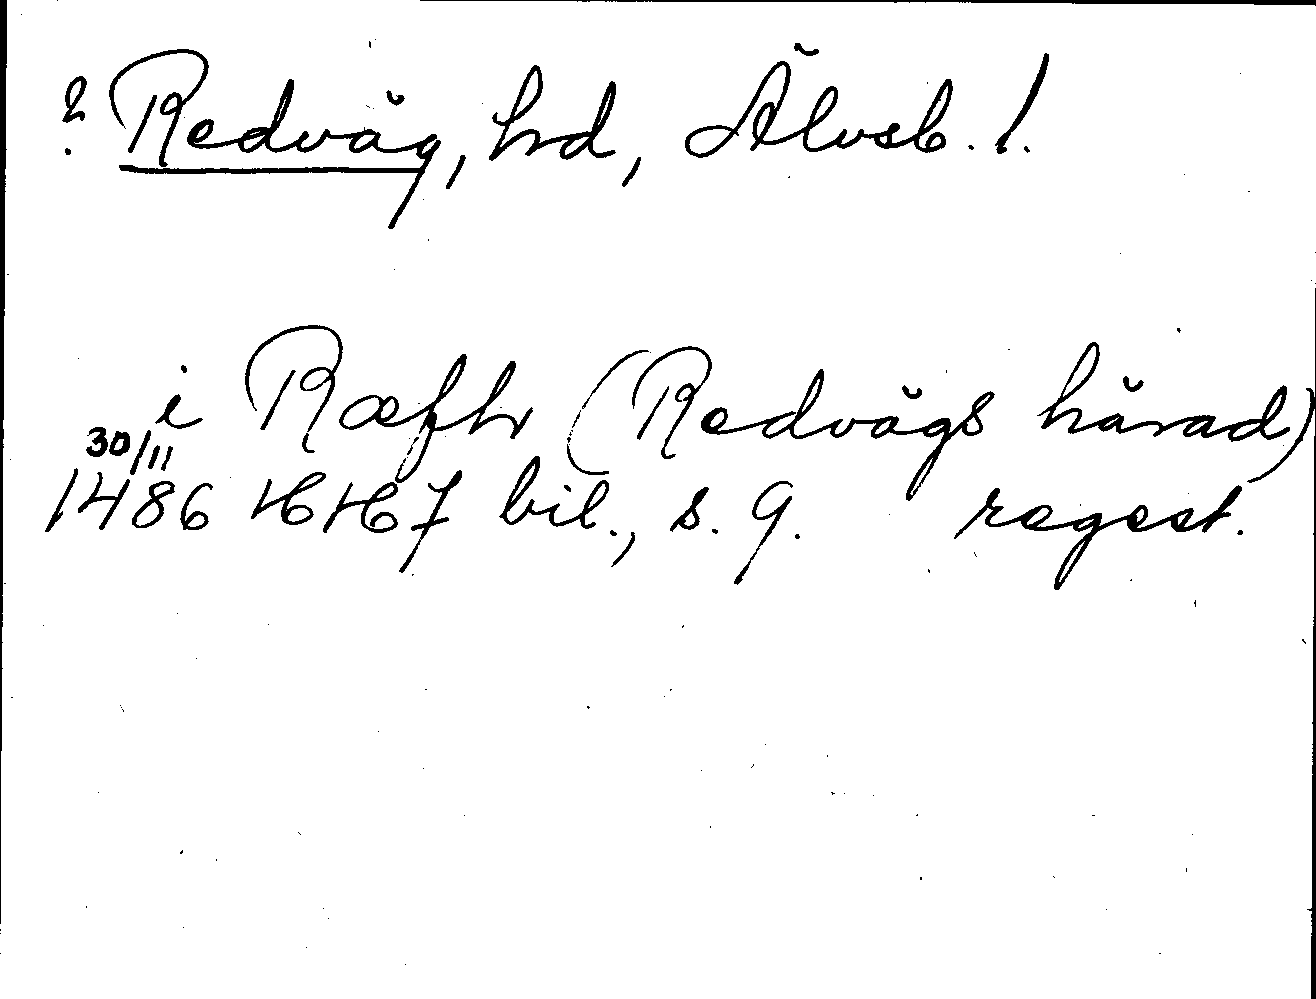 ? Redväg, hd, Älvsb. l.
i Ræfh (Redvägs härad)
30/11
1486 HH 7 bil., s. 9. regest.